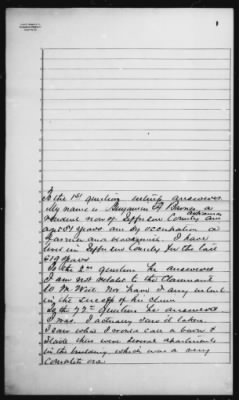 To the 1st question witness answered
My name is Benjamin F
resident now of Jefferson County
Arkansas
aged 54 years am by occupation a
Farmer and mechanic. I have
lived in Jefferson County for the last
19 years
To the 2nd question he answered
I am not related to the claimant
Nor have I any interest
in the success of his claim
To the 77th question he answered
I was. I actually saw it taken
I saw what I would call a barn &
there were several apartments
in the building which was a very